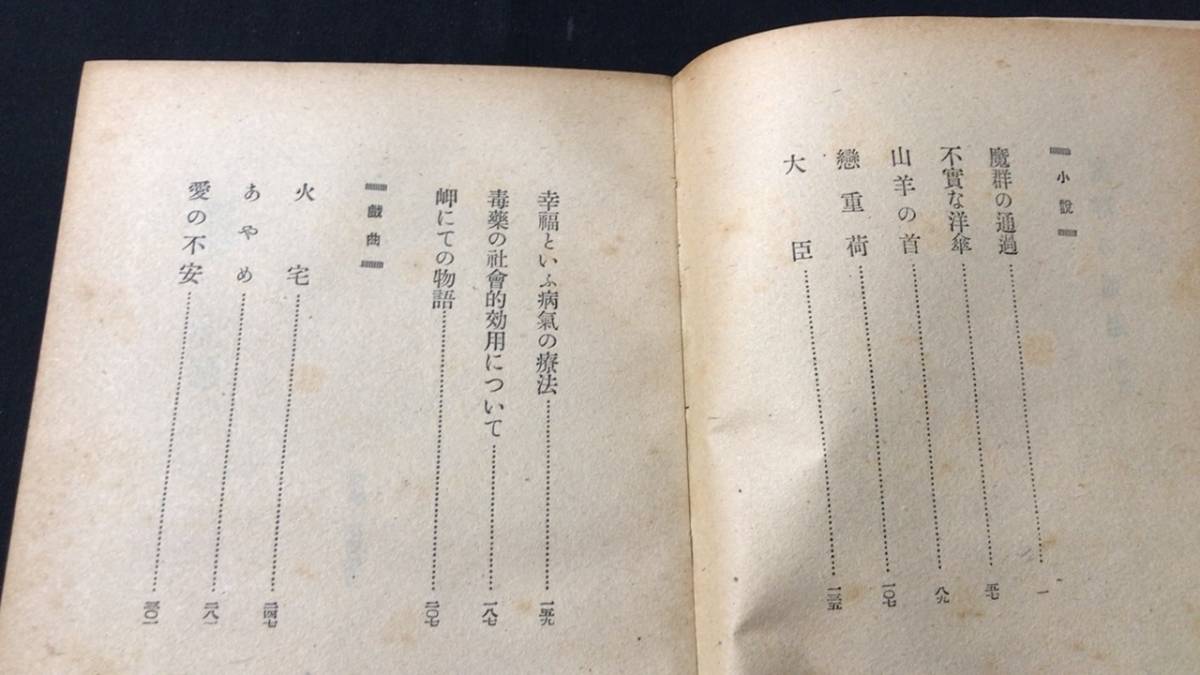 小說
魔群の通過 一
不實な洋傘 五七
山羊の首 八九
戀重荷 一〇七
大臣 一三五
幸福といふ病氣の療法 一五九
毒藥の社會的効用について 一八七
岬にての物語 二〇七
戲曲
火宅 二四七
あやめ 二八一
愛の不安 三〇一